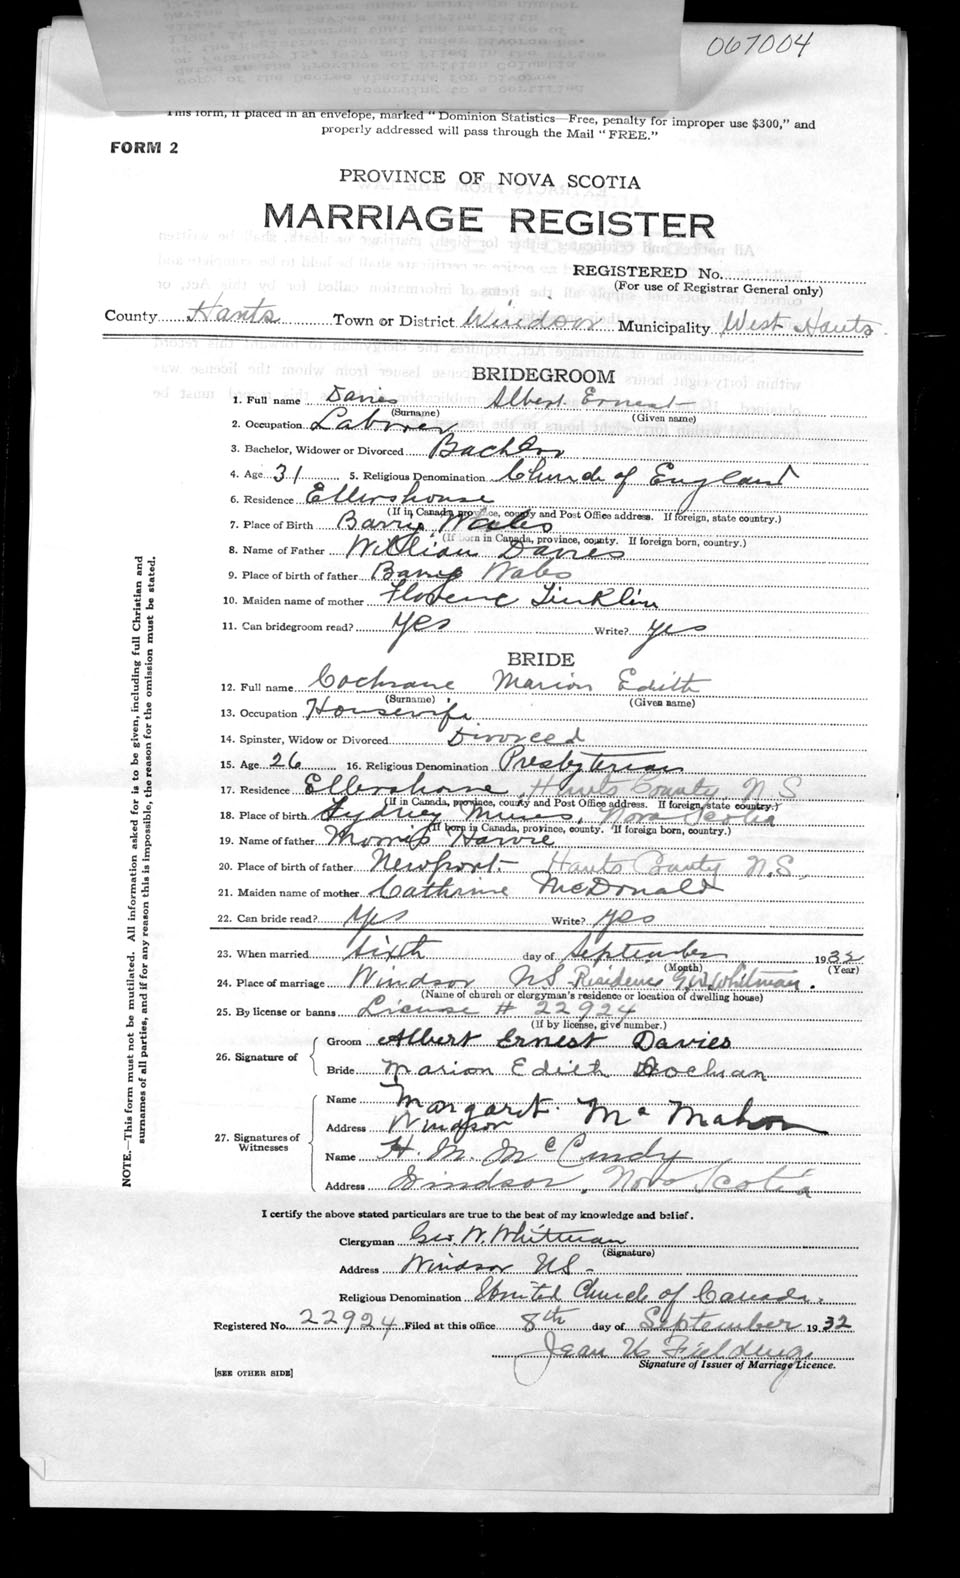 067004
This form, if placed in an envelope, marked "Dominion Statistics—Free, penalty for improper use $300," and
properly addressed will pass through the Mail "FREE."
FORM 2
PROVINCE OF NOVA SCOTIA
MARRIAGE REGISTER
REGISTERED No.
(For use of Registrar General only)
County Hants Town or District Windsor Municipality West Hants
BRIDEGROOM
1. Full name Davies Albert Ernest
(Surname) (Given name)
2. Occupation Laborer
3. Bachelor, Widower or Divorced Bachelor
4. Age 31 5. Religious Denomination Church of England
6. Residence Ellershouse
(If in Canada, province, county and Post Office address. If foreign, state country.)
7. Place of Birth Barry Wales
(If born in Canada, province, county. If foreign born, country.)
8. Name of Father William Davies
9. Place of birth of father Barry Wales
10. Maiden name of mother Florence Tinklin
11. Can bridegroom read? Yes Write? yes
BRIDE
12. Full name Cochrane Marion Edith
(Surname) (Given name)
13. Occupation Housewife
14. Spinster, Widow or Divorced Divorced
15. Age 26 16. Religious Denomination Presbyterian
17. Residence Ellershouse, Hants County N.S
(If in Canada, province, county and Post Office address. If foreign, state country.)
18. Place of birth Sydney Mines, Nova Scotia
(If born in Canada, province, county. If foreign born, country.)
19. Name of father Morris Harvie
20. Place of birth of father Newport. Hants County N.S.
21. Maiden name of mother Catherine McDonald
22. Can bride read? Yes Write? yes
23. When married sixth day of September 1932
(Month) (Year)
24. Place of marriage Windsor NS Residence G.W. Whitman.
(Name of church or clergyman's residence or location of dwelling house)
25. By license or banns License # 22924
(If by license, give number.)
26. Signature of
Groom Albert Ernest Davies
Bride Marion Edith Cochran
27. Signatures of Witnesses
Name Margaret McMahon
Address Windsor
Name H. M. McCurdy
Address Windsor, Nova Scotia
I certify the above stated particulars are true to the best of my knowledge and belief.
Clergyman Geo. W. Whitman
(Signature)
Address Windsor NS-
Religious Denomination United Church of Canada.
Registered No. 22924 Filed at this office 8th day of September 1932
Jean K Fielding
Signature of Issuer of Marriage Licence.
[SEE OTHER SIDE]
NOTE.—This form must not be mutilated. All information asked for is to be given, including full Christian and
surnames of all parties, and if for any reason this is impossible, the reason for the omission must be stated.